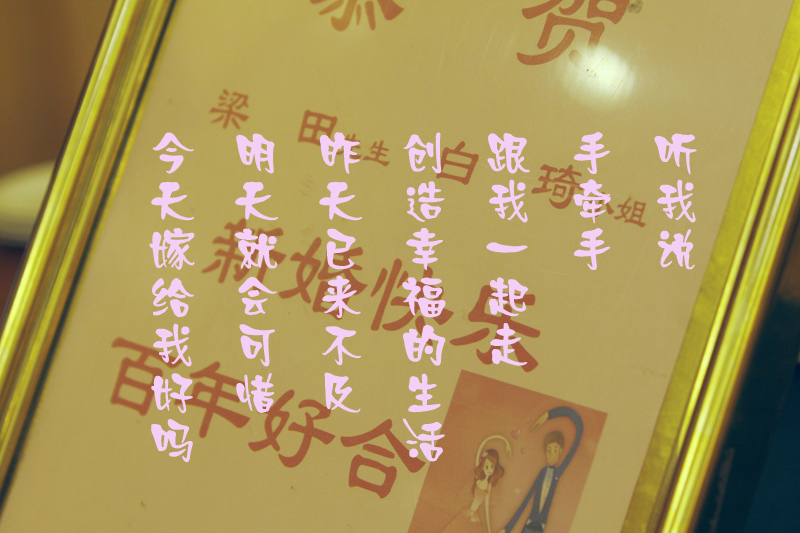 恭贺
梁田先生 白琦小姐
新婚快乐
百年好合
听我说
手牵手
跟我一起走
创造幸福的生活
昨天已来不及
明天就会可惜
今天嫁给我好吗